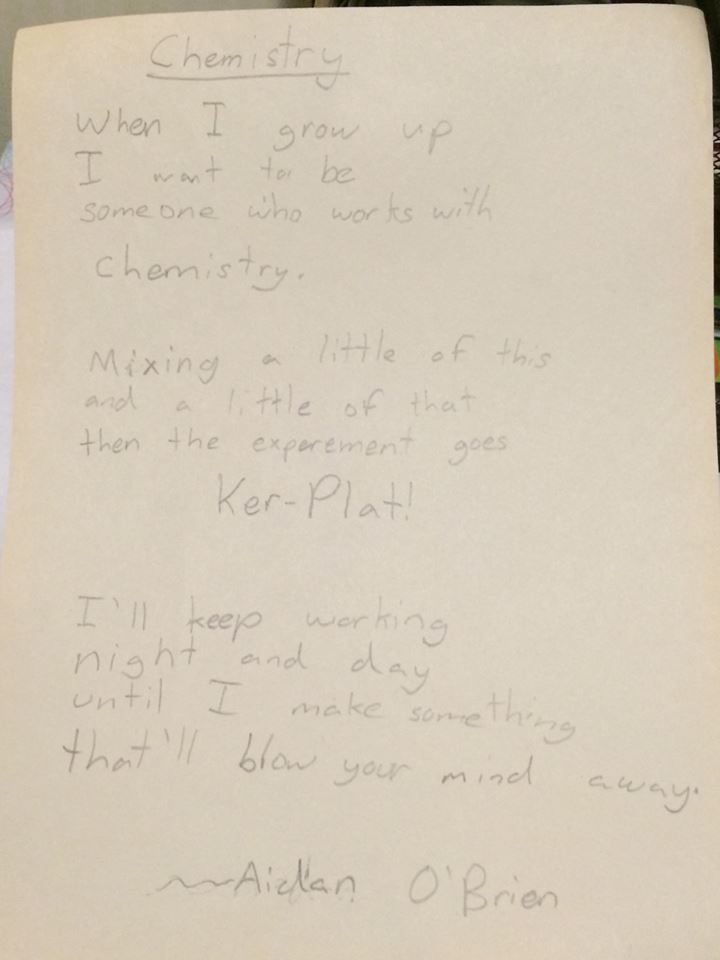 Chemistry
When I grow up
I want to be
someone who works with
Chemistry.
Mixing a little of this
and a little of that
then the experement goes
Ker-Plat!
I'll keep working
night and day
until I make something
that'll blow your mind away.
~~Aidan O'Brien